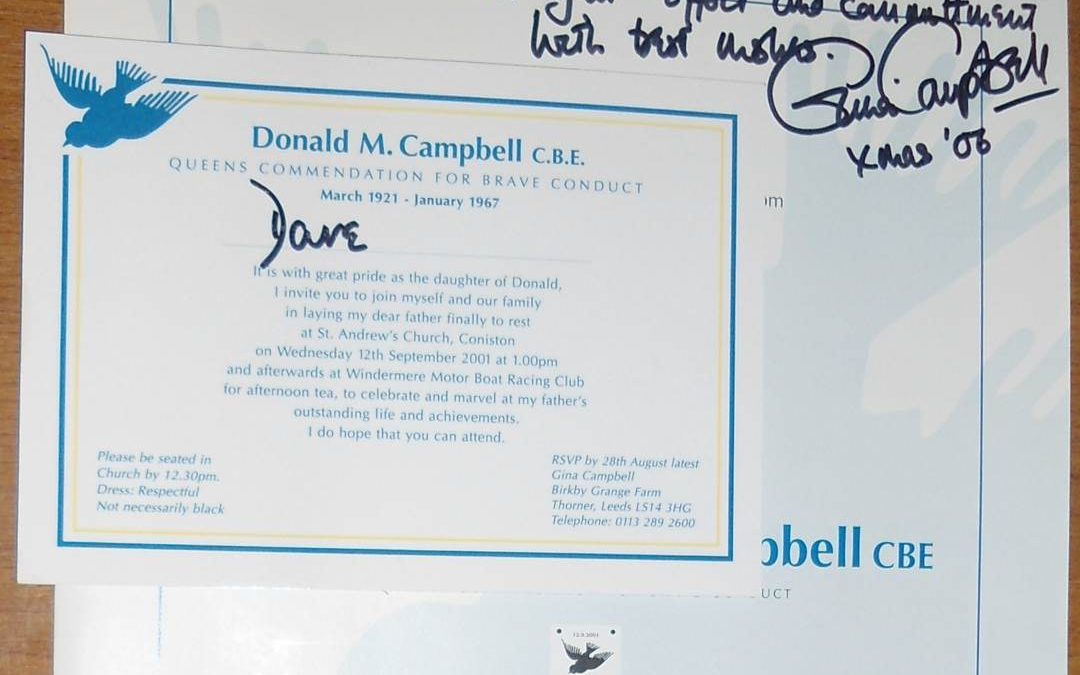 effort and commitment
with best wishes.
Gina Campbell
xmas '06
Donald M. Campbell C.B.E.
QUEENS COMMENDATION FOR BRAVE CONDUCT
March 1921 - January 1967
Dave
It is with great pride as the daughter of Donald,
I invite you to join myself and our family
in laying my dear father finally to rest
at St. Andrew's Church, Coniston
on Wednesday 12th September 2001 at 1.00pm
and afterwards at Windermere Motor Boat Racing Club
for afternoon tea, to celebrate and marvel at my father's
outstanding life and achievements.
I do hope that you can attend.
Please be seated in
Church by 12.30pm.
Dress: Respectful
Not necessarily black
RSVP by 28th August latest
Gina Campbell
Birkby Grange Farm
Thorner, Leeds LS14 3HG
Telephone: 0113 289 2600
om
pbell CBE
UCT
12.9.2001